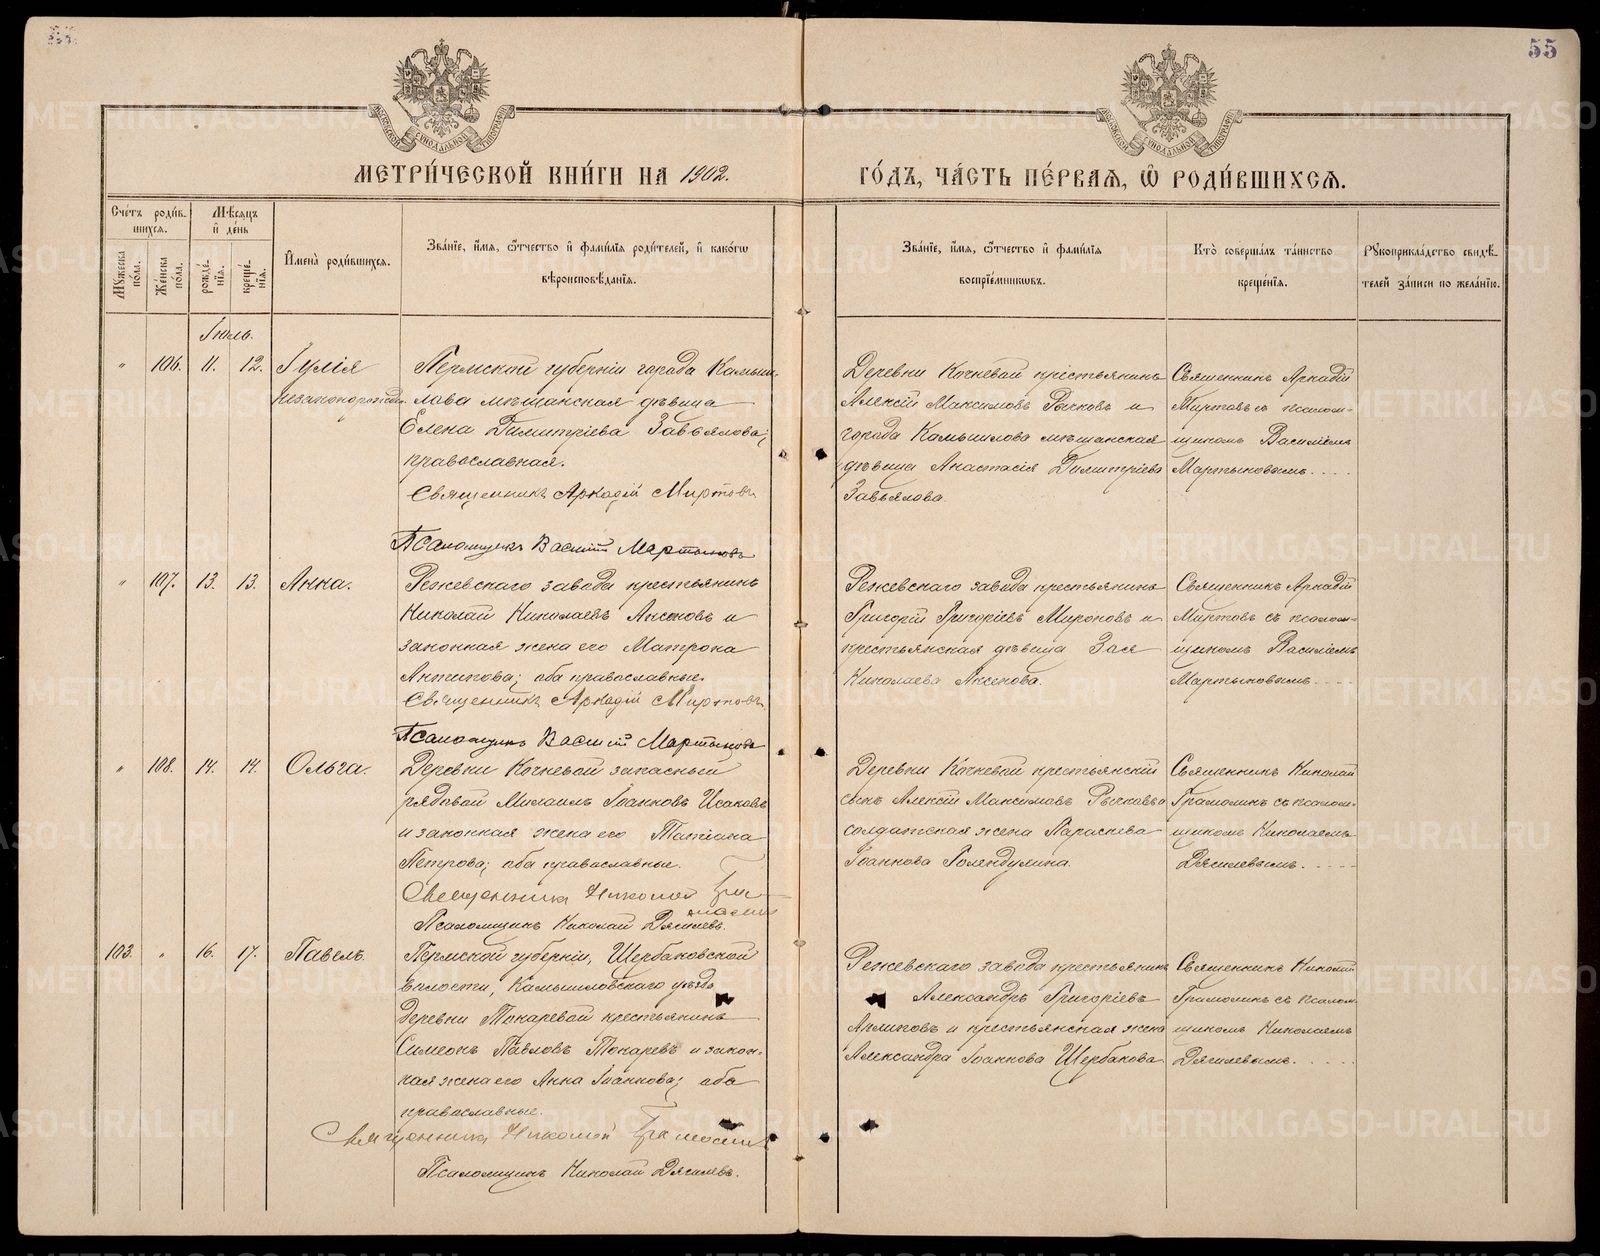 55
МЕТРИ́ЧЕСКОЙ КНИ́ГИ НА 1902.
ГО́ДЪ, ЧА́СТЬ ПЕ́РВАЯ, Ѡ РОДИ́ВШИХСЯ.
Сче́тъ роди́в-
шихся.
Мѣ́сяцъ
и҆ де́нь
Мꙋ́жеска
по́ла.
Же́нска
по́ла.
рожде́-
нія.
креще́-
нія.
И҆мена̀ роди́вшихся.
Зва́ніе, и҆́мя, ѻ҆́тчество и҆ фами́лія роди́телей, и҆ како́гѡ
вѣроисповѣ́данія.
Зва́ніе, и҆́мя, ѻ҆́тчество и҆ фами́лія
воспріе́мникѡвъ.
Кто̀ соверша́лъ та́инство
креще́нія.
Рꙋкоприкла́дство свидѣ́-
телей за́писи по жела́нію.
Іюль.
" 106. 11. 12. Іулія
незаконорожден.
Пермской губерніи города Камыш-
лова мѣщанская дѣвица
Елена Димитріева Завьялова;
православная.
Священникъ Аркадій Миртовъ
Псаломщикъ Василій Мартыновъ
Деревни Кочневой крестьянинъ
Алексій Максимовъ Рычковъ и
города Камышлова мѣщанская
дѣвица Анастасія Димитріева
Завьялова.
Священникъ Аркадій
Миртовъ съ псалом-
щикомъ Василіемъ
Мартыновымъ....
" 107. 13. 13. Анна.
Режевскаго завода крестьянинъ
Николай Николаевъ Аксеновъ и
законная жена его Матрона
Антипова; оба православные.
Священникъ Аркадій Миртовъ
Псаломщикъ Василій Мартыновъ
Режевскаго завода крестьянинъ
Григорій Григоріевъ Мироновъ и
крестьянская дѣвица Зоя
Николаева Аксенова.
Священникъ Аркадій
Миртовъ съ псалом-
щикомъ Василіемъ
Мартыновымъ....
" 108. 14. 14. Ольга.
Деревни Кочневой запасный
рядовой Михаилъ Іоанновъ Исаковъ
и законная жена его Татіана
Петрова; оба православные.
Священникъ Николай Гра-
молинъ
Псаломщикъ Николай Дягилевъ.
Деревни Кочневой крестьянскій
сынъ Алексій Максимовъ Рычковъ и
солдатская жена Параскева
Іоаннова Голендухина.
Священникъ Николай
Грамолинъ съ псалом-
щикомъ Николаемъ
Дягилевымъ.....
103. " 16. 17. Павелъ.
Пермской губерніи, Щербаковской
волости, Камышловскаго уѣзда
Деревни Токаревой крестьянинъ
Симеонъ Павловъ Токаревъ и закон-
ная жена его Анна Іоаннова; оба
православные.
Священникъ Николай Грамолинъ
Псаломщикъ Николай Дягилевъ.
Режевскаго завода крестьянинъ
Александръ Григоріевъ
и крестьянская жена
Александра Іоаннова Щербакова
Священникъ Николай
Грамолинъ съ псалом-
щикомъ Николаемъ
Дягилевымъ.....
METRIKI.GASO-URAL.RU